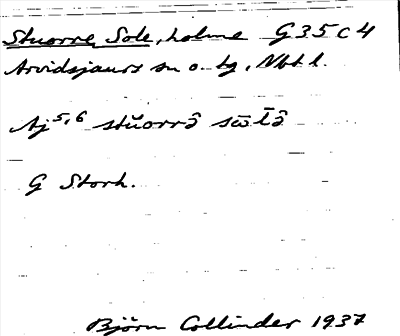 Stuorre Sole, holme G 35 c 4
Arvidsjaurs sn o. tg, Nbt l.
Aj 5,6 stŭorrâ sω̄l̄â
G Storh.
Björn Collinder 1937